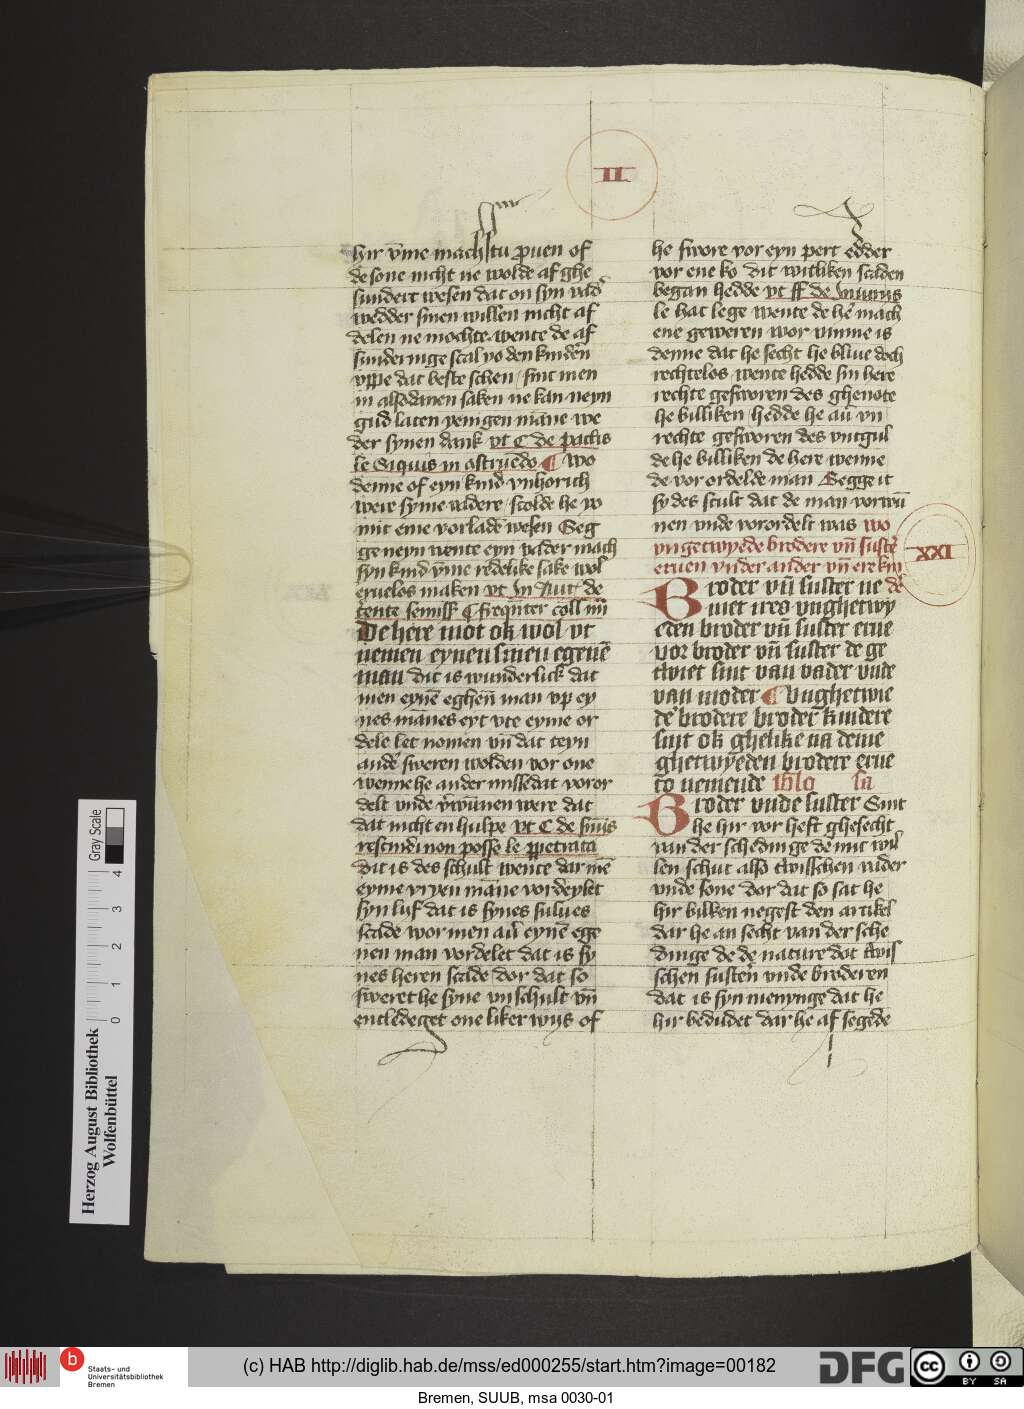 II
hir vm̄e machstu pruen of
de sone nicht ne wolde af ghe
sundert wesen dat on syn vad'
wedder sinen willen nicht af
delen ne mochte wente de af
sunderinge scal vo den kinderen
vppe dat beste schen / sint men
in alsodanen saken ne kan neyn
gud laten yenigen mane we
der synen dank vt C de pactis
le Siquis in astruēdo ¶ wo
denne of eyn kind vnhorich
were syme vadere / scolde he vo
mit eme vorladē wesen Seg
ge neyn wente eyn vader mach
syn kind vm̄e redelike sake wol
eruelos maken vt In Aut' de
De here mot ok wol vt
nemen eynen sinen egenē
man dit is wunderlick dat
men eynē eghen̄ man vp ey
nes mānes eyt vte eyme or
dele let nomen vn̄ dat teyn
ander sweren wolden vor one
wenne he ander missedat voror
delt vnde vorwūnen were dat
dat nicht en hulpe vt C de
rescindi non posse le
dit is des schult wente dar mē
eyme vryen māne vordeylet
syn lyf dat is synes sulues
scade wor men au'r eynē ege
nen man vordelet dat is sy
nes heren scade / dor dat so
sweret he syne vnschult vn̄
entledeget one liker wys of
he swore vor eyn pert edder
vor ene ko dit witliken scaden
began hedde vt ff de Iniuriis
le hac lege wente de he' mach
ene geweren wor vmme is
denne dat he secht he bliue doch
rechtelos / wente hedde sin here
rechte gesworen des ghenote
he billiken / hedde he au' vn
rechte gesworen des vntgul
de he billiken de here wenne
de vorordelde man Segge it
sy des scult dat de man vorwū
nen vnde vorordelt was wo
vngetwyede brodere vn̄ sustere
eruen vnder ander vn̄ ere kin
XXI
Broder vn̄ suster ne de'
met ires vnghetwy
eden broder vn̄ suster erue
vor broder vn̄ suster de ge
twiet sint van vader vnde
van moder ¶ Vnghetwie
de brodere broder kindere
sint ok ghelike na deme
ghetwyeden brodere erue
to nemende
Broder vnde suster Sint
he hir vor heft ghesecht
van der schedinge de mit wil
len schut also twisschen vader
vnde sone dor dat so sat he
hir bilken negest den artikel
dar he an secht van der sche
dinge de de nature dot twis
schen susteren vnde broderen
dat is syn menynge dat he
hir bedudet dar he af segede
Gray Scale
4
3
2
1
0
Herzog August Bibliothek
Wolfenbüttel
b
Staats- und
Universitätsbibliothek
Bremen
(c) HAB http://diglib.hab.de/mss/ed000255/start.htm?image=00182
DFG
cc
BY SA
Bremen, SUUB, msa 0030-01